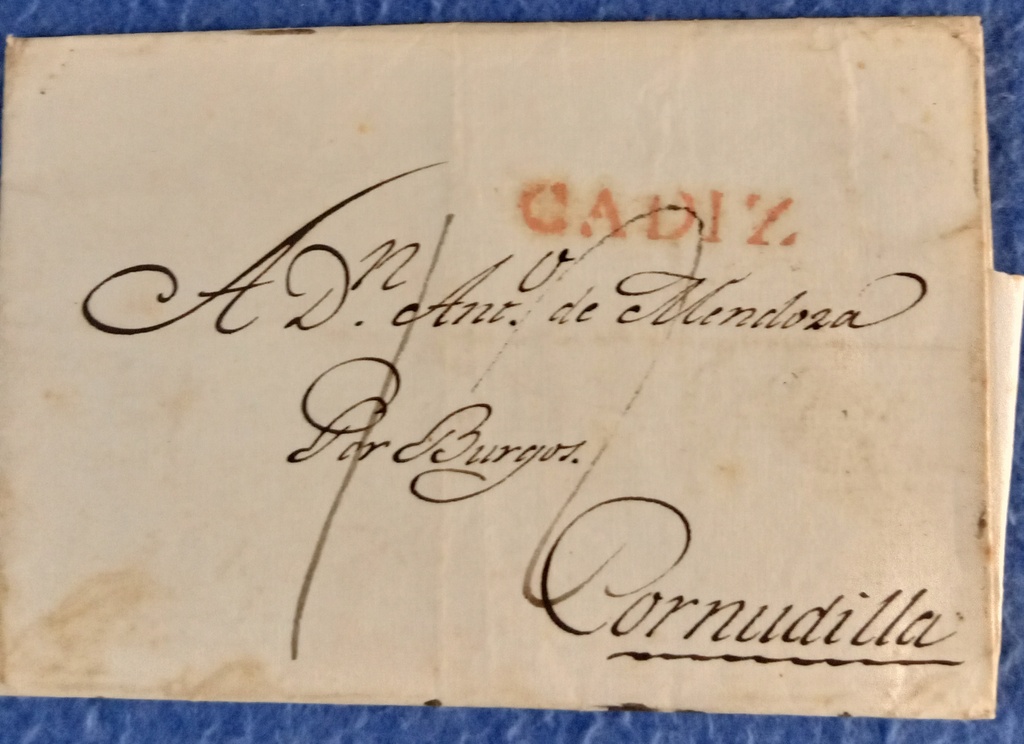 CADIZ
A Dn. Anto. de Mendoza
Por Burgos.
Cornudilla